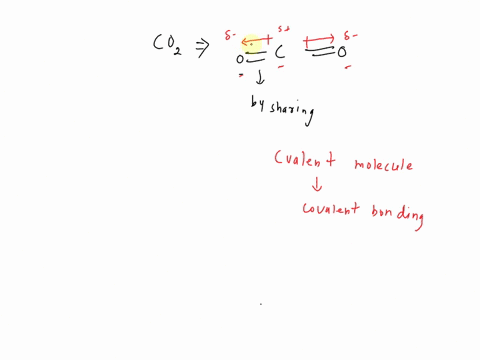 δ- δ+ δ-
CO₂ ⇒ O = C = O
↓
by sharing
Cvalent molecule
↓
covalent bonding